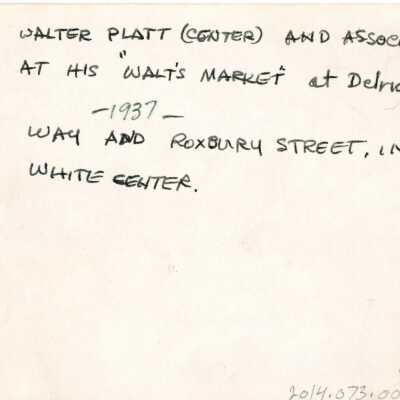 WALTER PLATT (CENTER) AND ASSOC
AT HIS "WALT'S MARKET" at Delri
-1937-
WAY AND ROXBURY STREET, IN
WHITE CENTER.
2014.073.00